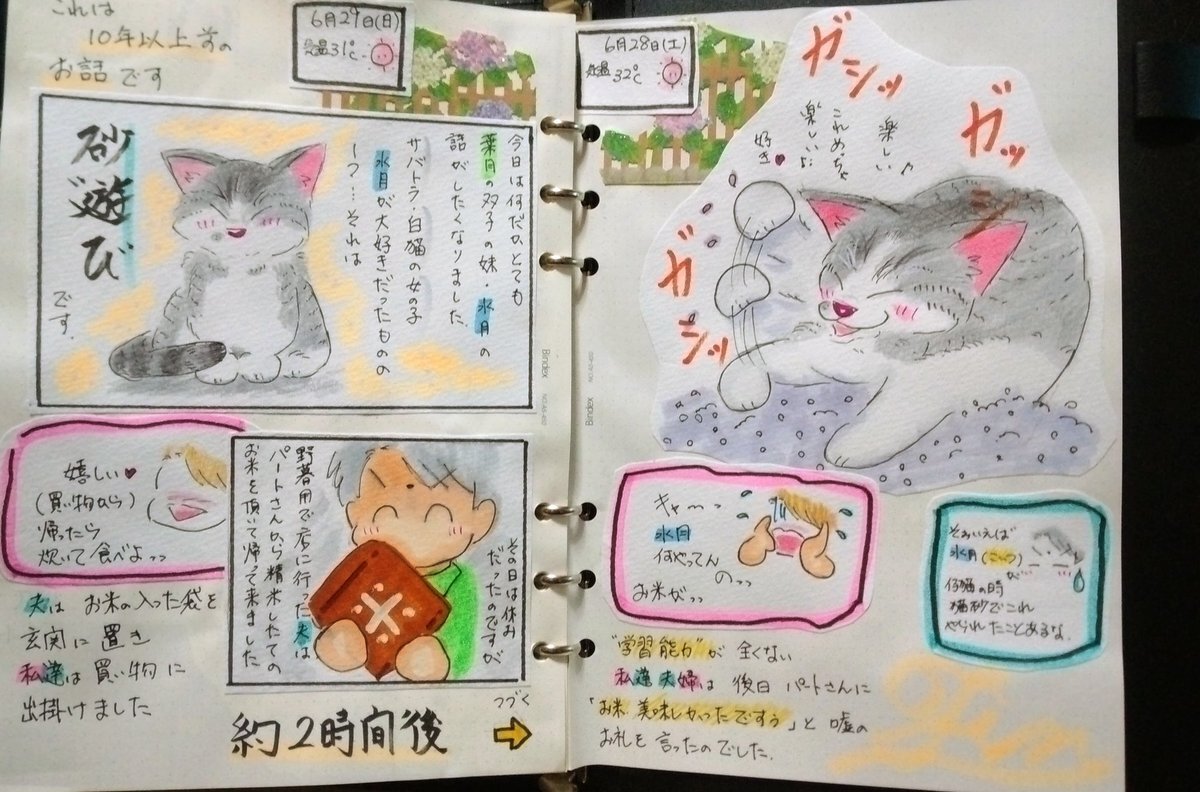 これは
10年以上前の
お話です
6月29日(日)
気温31℃
今日は何だかとても
葉月の双子の妹・水月の
話がしたくなりました
サバトラ・白猫の女の子
水月が大好きだったものの
1つ…それは
砂遊び
です.
嬉しい♥
(買い物から)
帰ったら
炊いて食べよっっ
その日は休み
だったのですが
野暮用で店に行った夫は
パートさんから精米したての
お米を頂いて帰って来ました
米
夫は お米の入った袋を
玄関に置き
私達は買い物に
出掛けました
つづく
約2時間後
Bindex
6月28日(土)
気温32℃
ガシッ
ガッシ
ガシッ
楽しい♪
これめっちゃ
楽しいよ
好き♥
Bindex
キャーっ
水月
何やってん
のっっ
お米がっっ
そういえば
水月(こっつ)が
仔猫の時
猫砂でこれ
やられたことあるな.
"学習能力"が 全くない
私達夫婦は 後日 パートさんに
「お米 美味しかったですぅ」と 嘘の
お礼を言ったのでした.